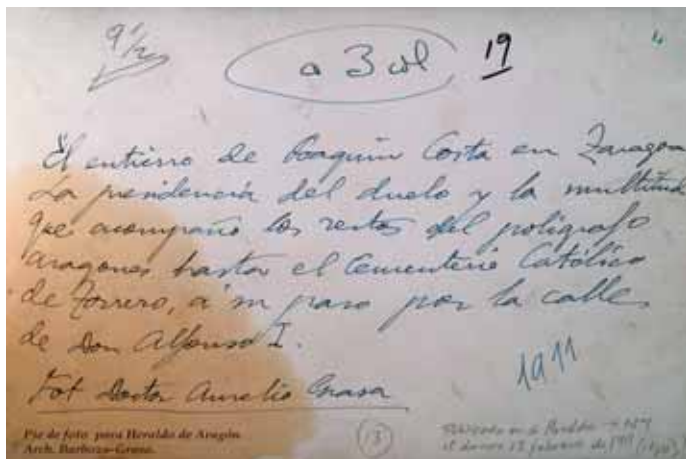 9½
a 3 col
19
El entierro de Joaquín Costa en Zaragoza
La presidencia del duelo y la multitud
que acompañó los restos del polígrafo
aragones hasta el Cementerio Católico
de Torrero, a su paso por la calle
de Don Alfonso I.
1911
Fot Doctor Aurelio Grasa
Pie de foto para Heraldo de Aragón.
Arch. Barboza-Grasa.
13
en el Heraldo
13 febrero de 1911